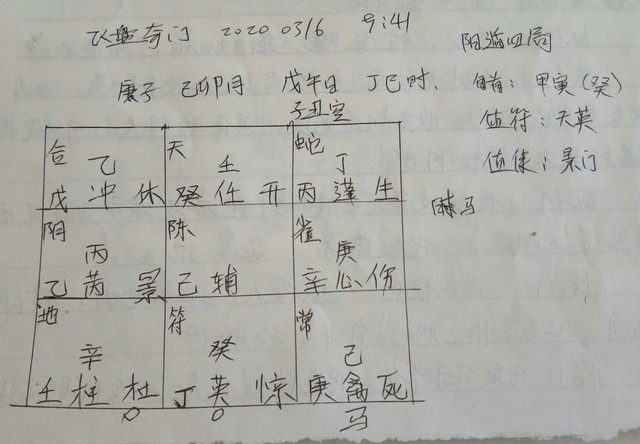 飞盘奇门 2020 03/6 9:41 阳遁四局
庚子 己卯月 戊午日 丁巳时. 旬首: 甲寅(癸)
子丑空
值符: 天英
值使: 景门
合 乙 天 壬 蛇 丁
戊 冲 休 癸 任 开 丙 蓬 生
马
阴 丙 陈 雀 庚
乙 芮 景 己 辅 辛 心 伤
地 辛 符 癸 常 己
壬 柱 杜 丁 英 惊 庚 禽 死
O O 马